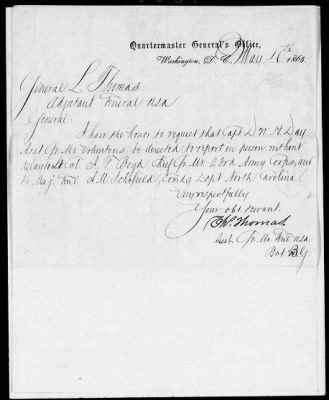 Quartermaster General's Office,
Washington, D. C. May 17th 1865.
General L. Thomas.
Adjutant General USA
General:
I have the honor to request that Capt D W. H Day
Asst Qr Mr Volunteers, be directed to report in person without
delay to Bt Col. S. T. Boyd Chief Qr Mr 23rd Army Corps, and
to Maj. Genl J. M. Schofield, Comdg Dept North Carolina
Very respectfully
Your obt servant.
Ch. Thomas
Asst. Qr. Mr. Genl. USA
Bvt B. G.